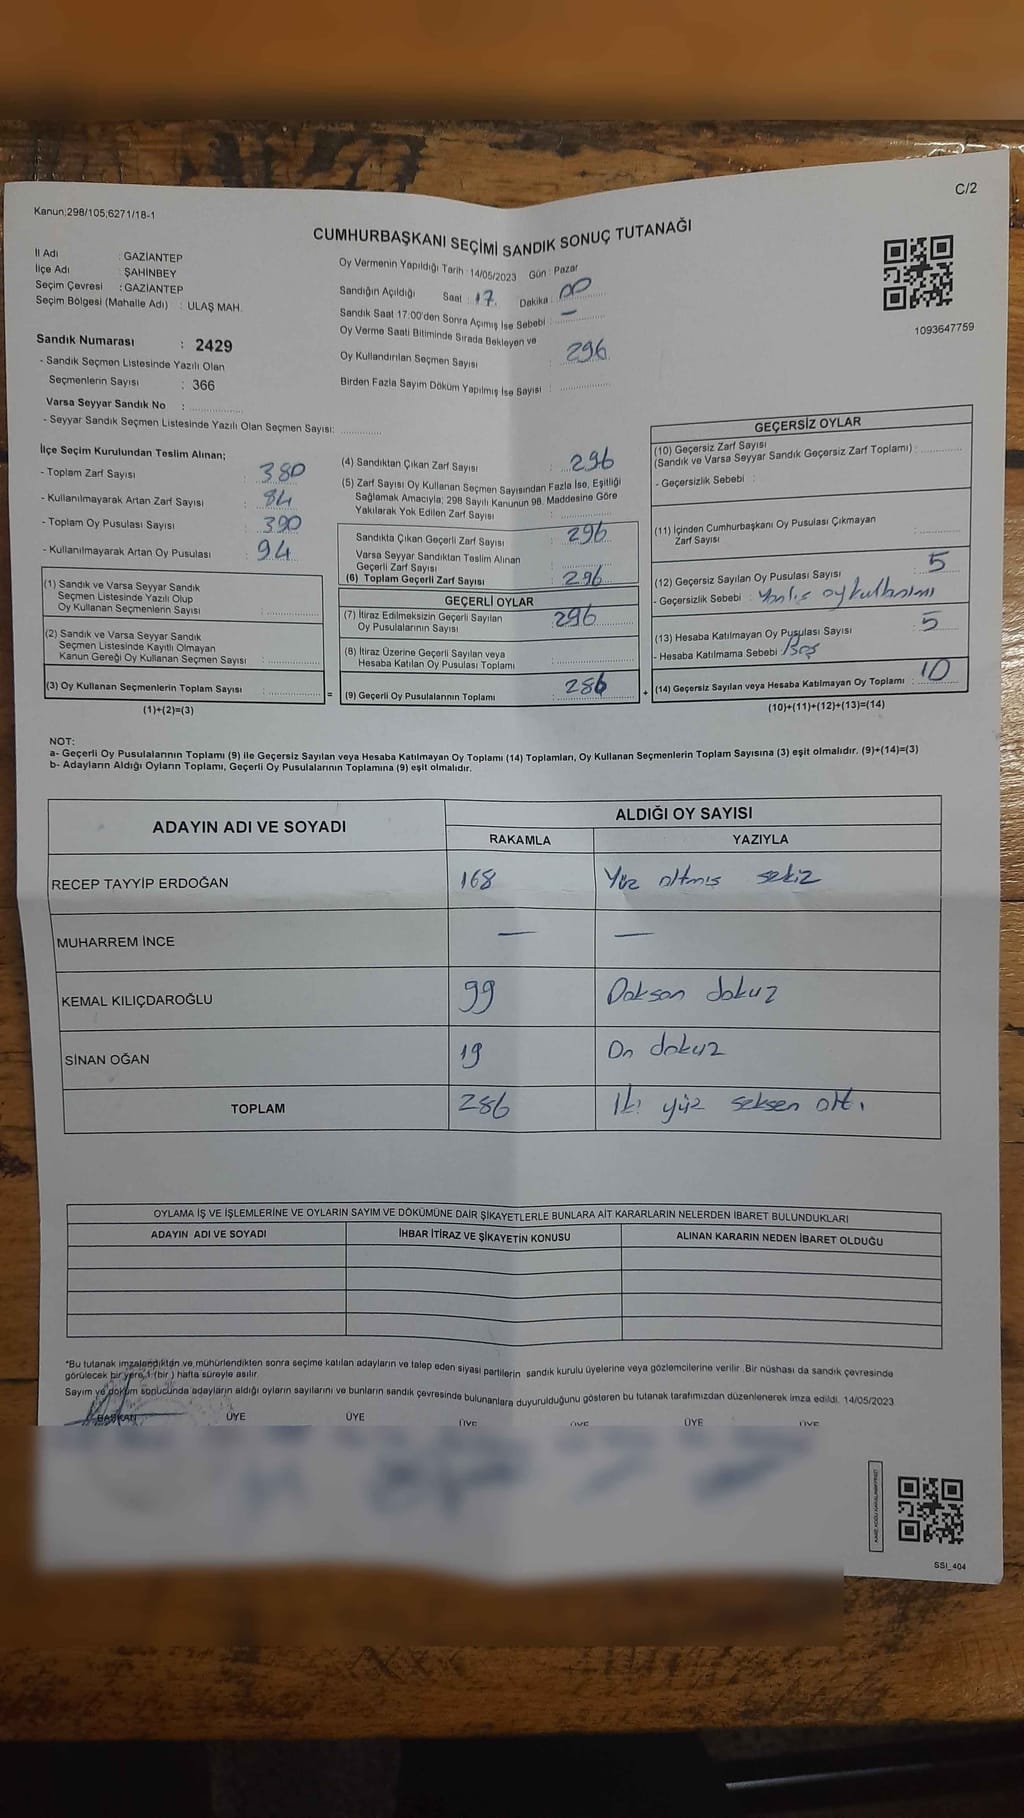 C/2
Kanun;298/105;6271/18-1
CUMHURBAŞKANI SEÇİMİ SANDIK SONUÇ TUTANAĞI
İl Adı : GAZİANTEP
İlçe Adı : ŞAHİNBEY
Seçim Çevresi : GAZİANTEP
Seçim Bölgesi (Mahalle Adı) : ULAŞ MAH.
Sandık Numarası : 2429
- Sandık Seçmen Listesinde Yazılı Olan
Seçmenlerin Sayısı : 366
Varsa Seyyar Sandık No :
- Seyyar Sandık Seçmen Listesinde Yazılı Olan Seçmen Sayısı:
Oy Vermenin Yapıldığı Tarih : 14/05/2023 Gün : Pazar
Sandığın Açıldığı Saat : 17 Dakika : 00
Sandık Saat 17:00'den Sonra Açımış İse Sebebi : —
Oy Verme Saati Bitiminde Sırada Bekleyen ve
Oy Kullandırılan Seçmen Sayısı : 296
Birden Fazla Sayım Döküm Yapılmış İse Sayısı :
1093647759
İlçe Seçim Kurulundan Teslim Alınan;
- Toplam Zarf Sayısı : 380
- Kullanılmayarak Artan Zarf Sayısı : 84
- Toplam Oy Pusulası Sayısı : 390
- Kullanılmayarak Artan Oy Pusulası : 94
(1) Sandık ve Varsa Seyyar Sandık
Seçmen Listesinde Yazılı Olup
Oy Kullanan Seçmenlerin Sayısı :
(2) Sandık ve Varsa Seyyar Sandık
Seçmen Listesinde Kayıtlı Olmayan
Kanun Gereği Oy Kullanan Seçmen Sayısı :
(3) Oy Kullanan Seçmenlerin Toplam Sayısı :
(1)+(2)=(3)
=
(4) Sandıktan Çıkan Zarf Sayısı : 296
(5) Zarf Sayısı Oy Kullanan Seçmen Sayısından Fazla İse, Eşitliği
Sağlamak Amacıyla; 298 Sayılı Kanunun 98. Maddesine Göre
Yakılarak Yok Edilen Zarf Sayısı :
Sandıkta Çıkan Geçerli Zarf Sayısı : 296
Varsa Seyyar Sandıktan Teslim Alınan
Geçerli Zarf Sayısı :
(6) Toplam Geçerli Zarf Sayısı : 296
GEÇERLİ OYLAR
(7) İtiraz Edilmeksizin Geçerli Sayılan
Oy Pusulalarının Sayısı : 296
(8) İtiraz Üzerine Geçerli Sayılan veya
Hesaba Katılan Oy Pusulası Toplamı :
(9) Geçerli Oy Pusulalarının Toplamı : 286
+
GEÇERSİZ OYLAR
(10) Geçersiz Zarf Sayısı
(Sandık ve Varsa Seyyar Sandık Geçersiz Zarf Toplamı) :
- Geçersizlik Sebebi :
(11) İçinden Cumhurbaşkanı Oy Pusulası Çıkmayan
Zarf Sayısı :
(12) Geçersiz Sayılan Oy Pusulası Sayısı : 5
- Geçersizlik Sebebi : Yanlış oy kullanımı
(13) Hesaba Katılmayan Oy Pusulası Sayısı : 5
- Hesaba Katılmama Sebebi : Boş
(14) Geçersiz Sayılan veya Hesaba Katılmayan Oy Toplamı : 10
(10)+(11)+(12)+(13)=(14)
NOT:
a- Geçerli Oy Pusulalarının Toplamı (9) ile Geçersiz Sayılan veya Hesaba Katılmayan Oy Toplamı (14) Toplamları, Oy Kullanan Seçmenlerin Toplam Sayısına (3) eşit olmalıdır. (9)+(14)=(3)
b- Adayların Aldığı Oyların Toplamı, Geçerli Oy Pusulalarının Toplamına (9) eşit olmalıdır.
ADAYIN ADI VE SOYADI ALDIĞI OY SAYISI
RAKAMLA YAZIYLA
RECEP TAYYİP ERDOĞAN 168 Yüz altmış sekiz
MUHARREM İNCE — —
KEMAL KILIÇDAROĞLU 99 Doksan dokuz
SİNAN OĞAN 19 On dokuz
TOPLAM 286 İki yüz seksen altı
OYLAMA İŞ VE İŞLEMLERİNE VE OYLARIN SAYIM VE DÖKÜMÜNE DAİR ŞİKAYETLERLE BUNLARA AİT KARARLARIN NELERDEN İBARET BULUNDUKLARI
ADAYIN ADI VE SOYADI İHBAR İTİRAZ VE ŞİKAYETİN KONUSU ALINAN KARARIN NEDEN İBARET OLDUĞU
*Bu tutanak imzalandıktan ve mühürlendikten sonra seçime katılan adayların ve talep eden siyasi partilerin sandık kurulu üyelerine veya gözlemcilerine verilir. Bir nüshası da sandık çevresinde
görülecek bir yere 1 (bir ) hafta süreyle asılır.
Sayım ve döküm sonucunda adayların aldığı oyların sayılarını ve bunların sandık çevresinde bulunanlara duyurulduğunu gösteren bu tutanak tarafımızdan düzenlenerek imza edildi. 14/05/2023
BAŞKAN ÜYE ÜYE ÜYE ÜYE ÜYE ÜYE
SSI_404